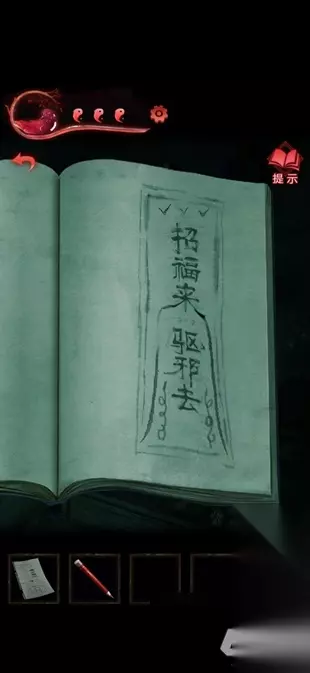 提示
招福来
驱邪去